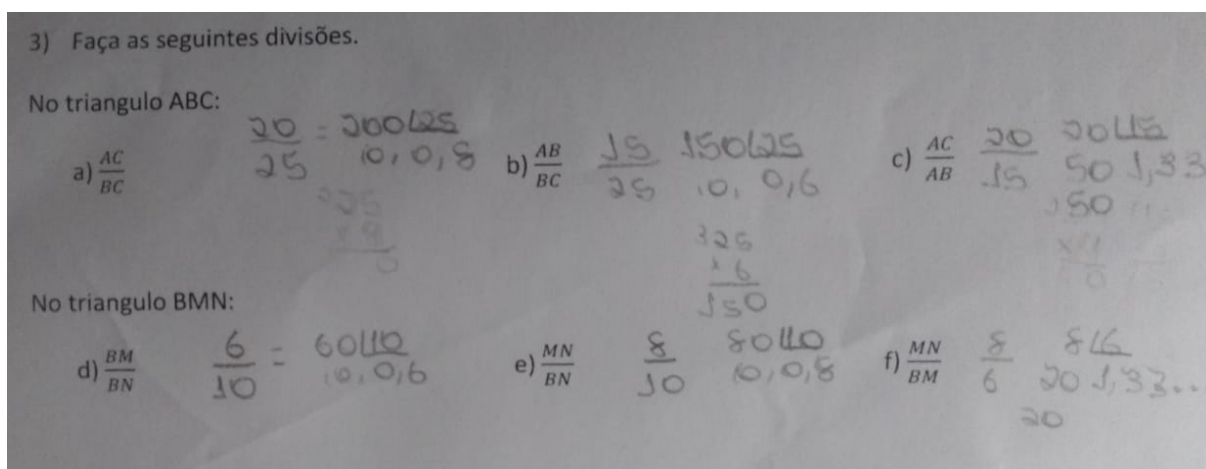 3) Faça as seguintes divisões.
No triangulo ABC:
a) AC/BC 20/25 = 200 25
0, 0,8
b) AB/BC 15/25 150 25
0, 0,6
325
× 6
150
c) AC/AB 20/15 20 15
50 1,33
50
No triangulo BMN:
d) BM/BN 6/10 = 60 10
0, 0,6
e) MN/BN 8/10 80 10
0, 0,8
f) MN/BM 8/6 8 6
20 1,33..
20